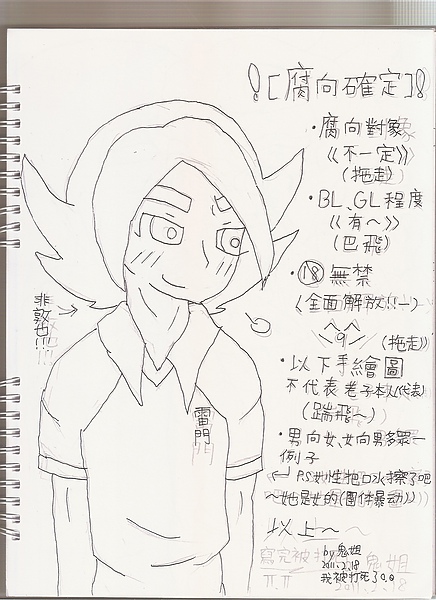 ![腐向確定]!
·腐向對象
《不一定》
(拖走)
·BL、GL程度
《有~》
(巴飛)
·⑱無禁
《全面解放!!一)
^q^
(拖走)
·以下手繪圖
不代表老子本人(代表)
(踹飛~)
·男向女、女向男多眾一
例子
P.S女生把口水擦了吧
~她是女的(團体暴动)》
以上~~
by 鬼姐
2011.2.18
我被打死了o.o
寫完被打
鬼姐
π.π
2011.2.18
非
敦也!!!
雷門